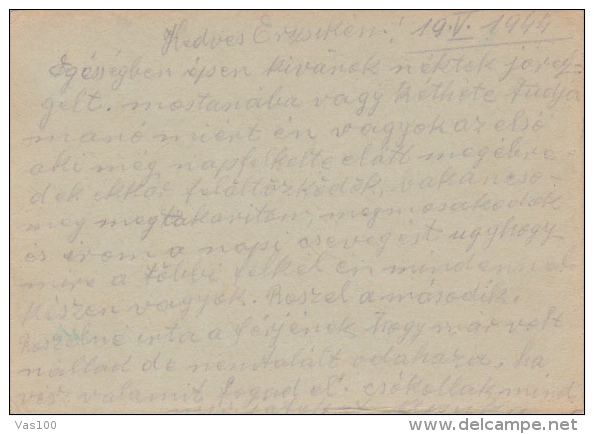 Kedves Erzsikém! 19.V.1944
Egésségben épen kivánok néktek jórеg-
gelt. mostanába vagy kéthete tudja
manó miért én vagyok az első
aki még napfelkelte elött megébre-
dek ekkor felöltözködök,
meg megtakaritom, megmosakodok
és irom a napi csevegést ugyhogy
mire a többi felkel én mindennel
készen vagyok. Roszel a második.
Roszelné irta a férjének hogy már volt
nallad de nem talált odahaza, ha
visz valamit fogad el. csókollak mind
Vas100
delcampe.net